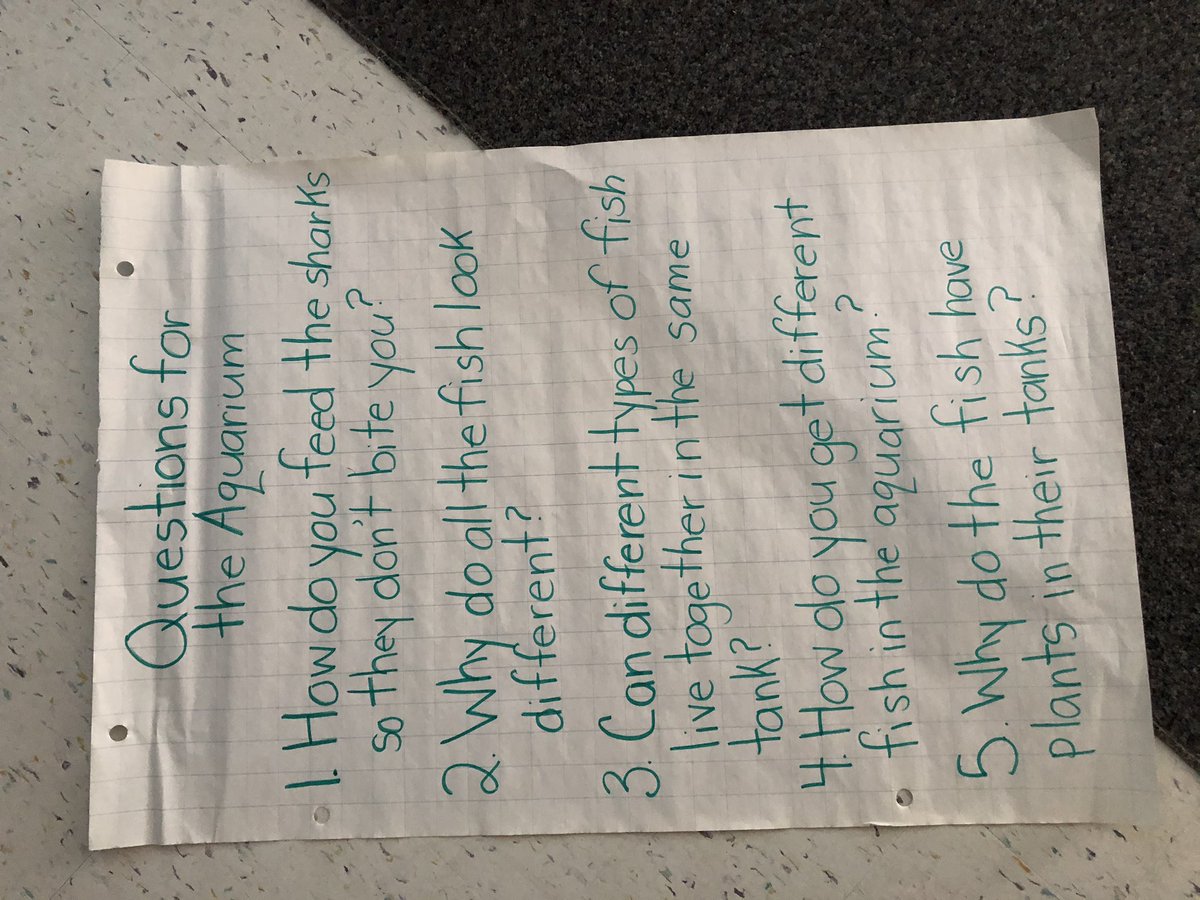 Questions for
the Aquarium
1. How do you feed the sharks
so they don't bite you?
2. Why do all the fish look
different?
3. Can different types of fish
live together in the same
tank?
4. How do you get different
fish in the aquarium?
5. Why do the fish have
plants in their tanks?